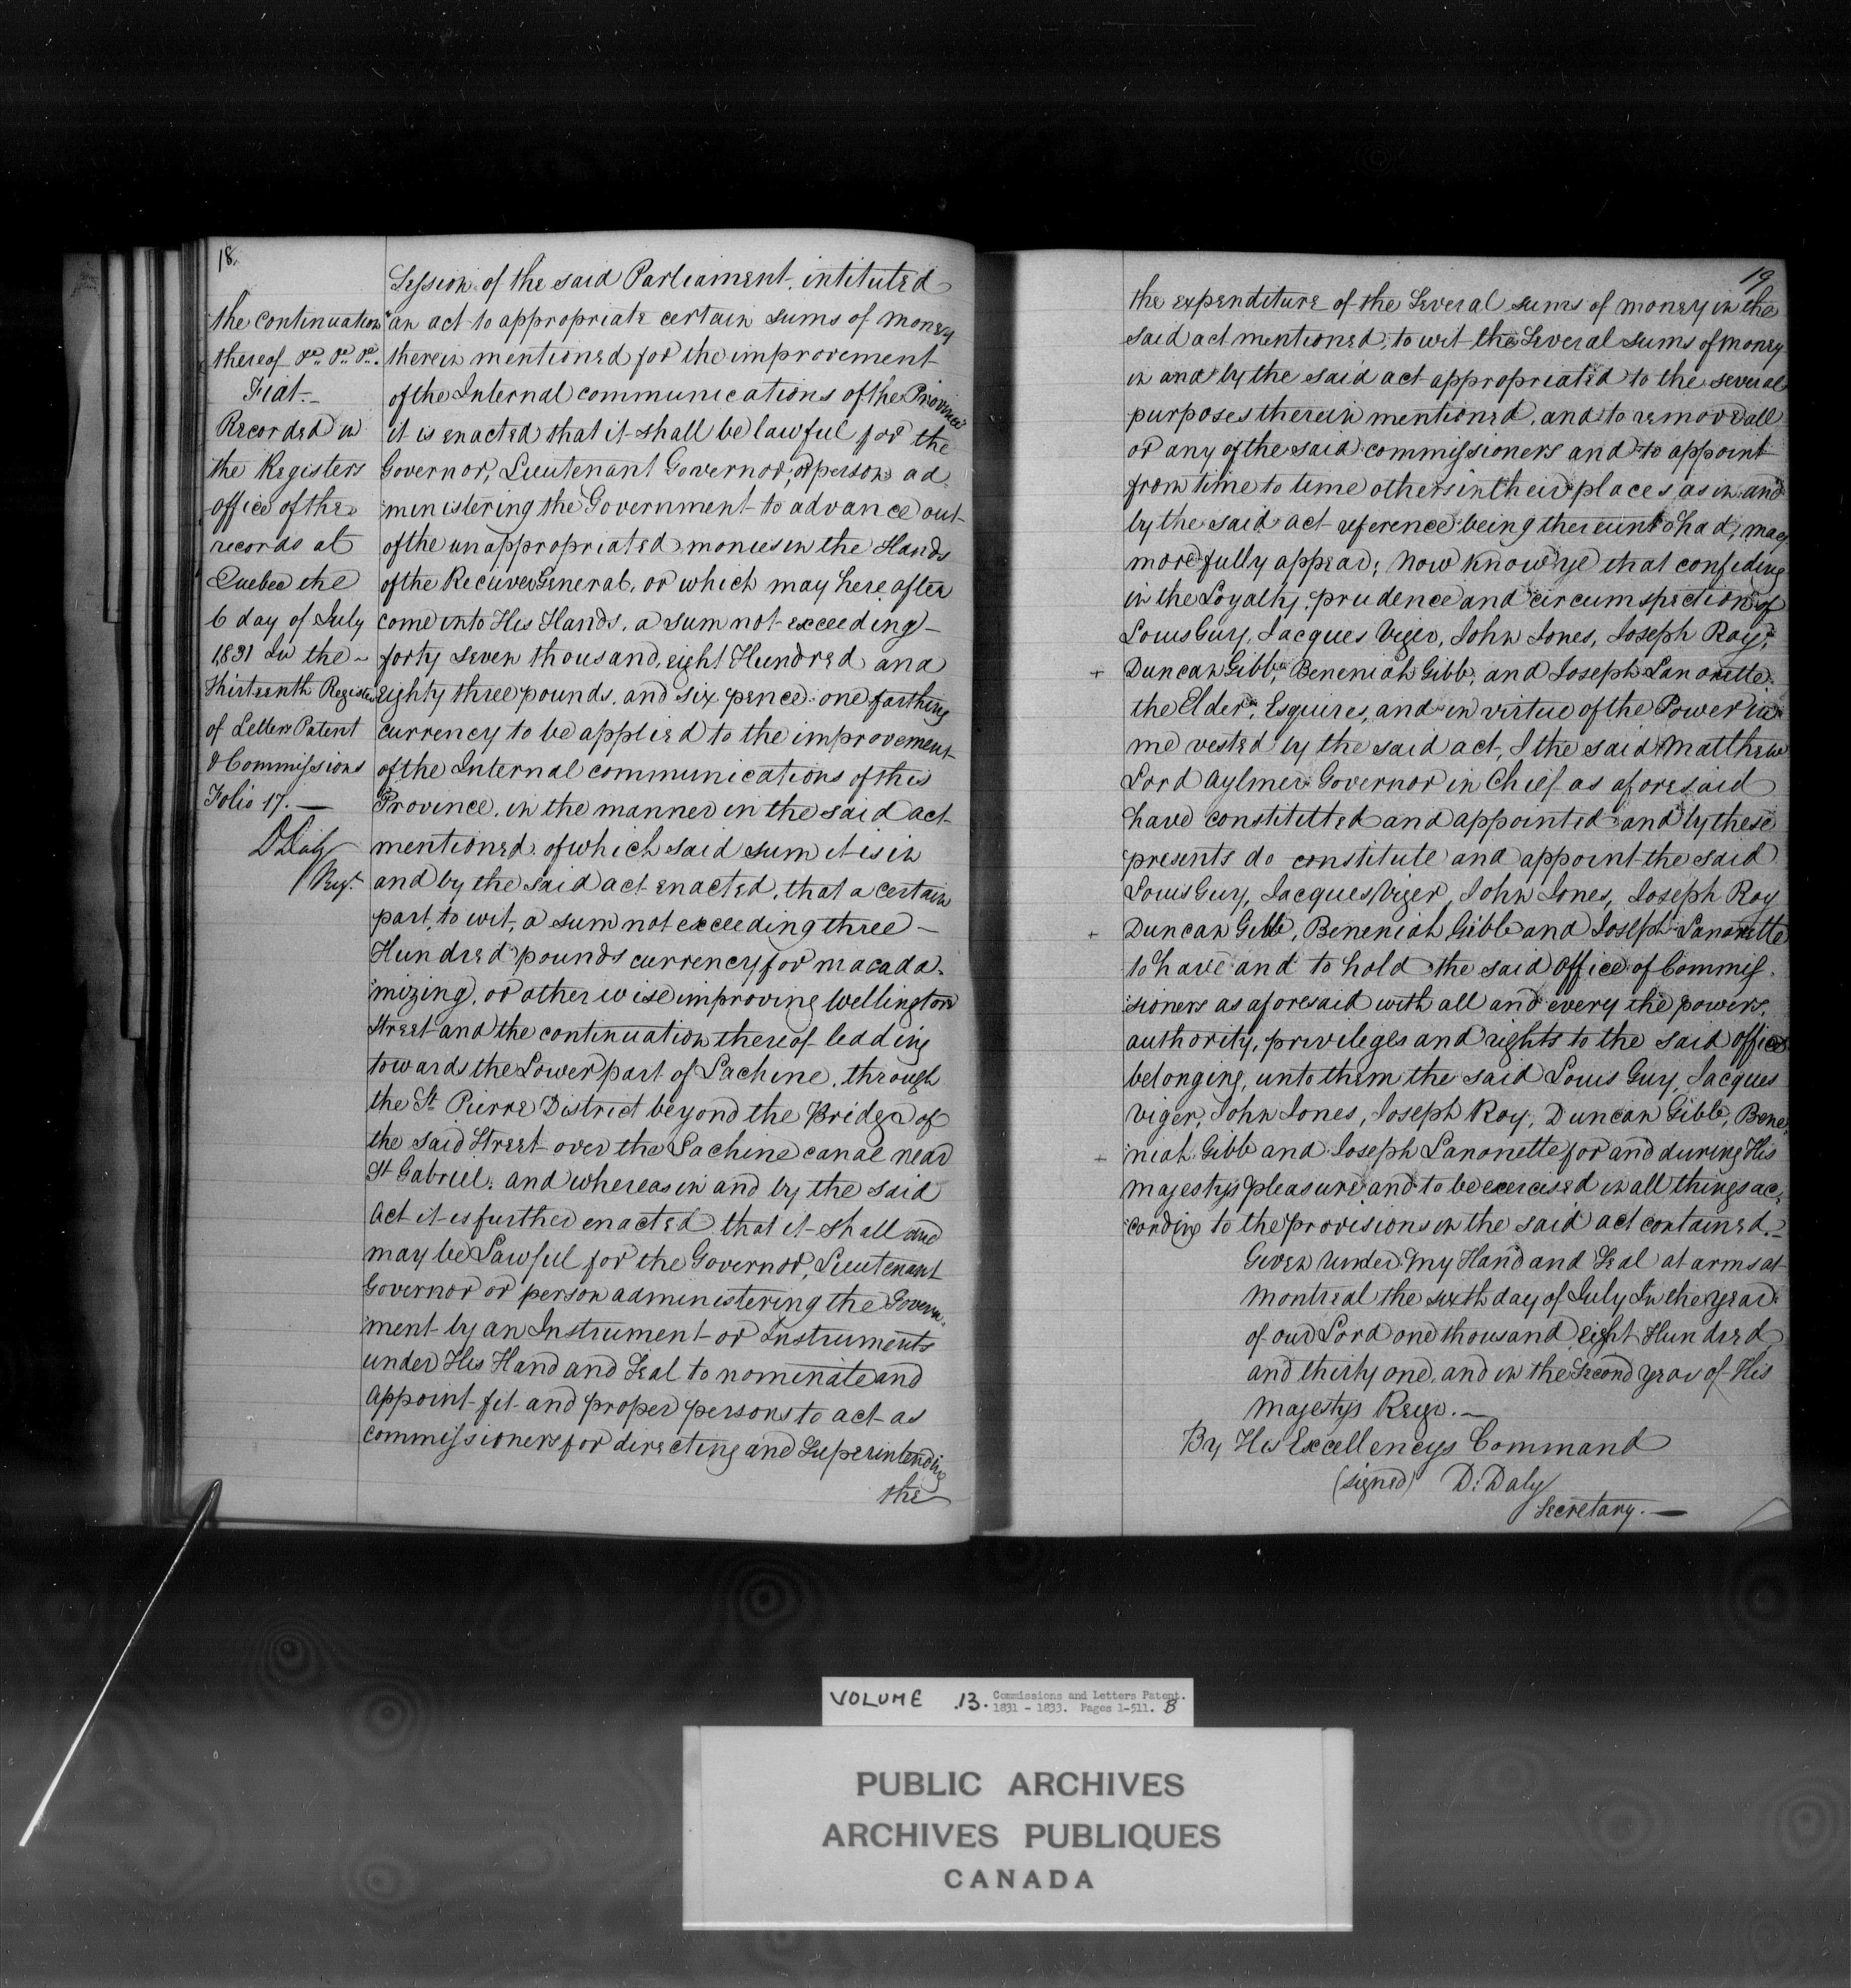 18.
the continuation
thereof &c. &c. &c.
Fiat.
Recorded in
the Registers
office of the
records at
Quebec the
6 day of July
1831 In the
Thirteenth Register
of Letters Patent
& Commissions
Folio 17.
D Daly
Regr.
Session of the said Parliament, intituted
"an act to appropriate certain sums of money
therein mentioned for the improvement
of the Internal communications of the Province"
it is enacted that it shall be lawful for the
Governor, Lieutenant Governor, or person ad
ministering the Government to advance out
of the unappropriated monies in the Hands
of the Receiver General, or which may here after
come into His Hands, a sum not exceeding
forty seven thousand, eight Hundred and
eighty three pounds, and six pence one farthing
currency to be applied to the improvement
of the Internal communications of this
Province, in the manner in the said act
mentioned of which said sum it is in
and by the said act enacted, that a certain
part, to wit, a sum not exceeding three
Hundred pounds currency for macada-
mizing, or other wise improving Wellington
Street and the continuation thereof leading
towards the Lower part of Lachine, through
the St Pierre District beyond the Bridge of
the said Street over the Lachine canal near
St Gabriel. and whereas in and by the said
Act it is further enacted that it shall and
may be Lawful for the Governor, Lieutenant
Governor or person administering the Govern-
ment by an Instrument or Instruments
under His Hand and Seal to nominate and
appoint fit and proper persons to act as
commissioners for directing and Superintending
the
19
the expenditure of the Several sums of money in the
said act mentioned, to wit the Several sums of money
in and by the said act appropriated to the several
purposes therein mentioned, and to remove all
or any of the said commissioners and to appoint
from time to time others in their places as in and
by the said act reference being thereunto had, may
more fully appear; Now Know ye that confiding
in the Loyalty, prudence and circumspection of
Louis Guy, Jacques Viger, John Jones, Joseph Roy,
+ Duncan Gibb, Beneniah Gibb, and Joseph Lanonette
the Elder, Esquires, and in virtue of the Power in
me vested by the said act, I the said Matthew
Lord Aylmer Governor in Chief as aforesaid
have constitetted and appointed and by these
presents do constitute and appoint the said
Louis Guy, Jacques Viger, John Jones, Joseph Roy
+ Duncan Gibb, Beneniah Gibb and Joseph Lanonette
to have and to hold the said office of Commis-
sioners as aforesaid with all and every the powers,
authority, privileges and rights to the said office
belonging, unto them the said Louis Guy, Jacques
Viger, John Jones, Joseph Roy, Duncan Gibb, Bene-
+ niah Gibb and Joseph Lanonette for and during His
Majestys pleasure and to be exercised in all things ac-
cording to the provisions in the said act contained.
Given under my Hand and Seal at arms at
Montreal the sixth day of July In the year
of our Lord one thousand eight Hundred
and thirty one, and in the Second year of His
Majestys Reign.
By His Excellencys Command
(signed) D. Daly
Secretary.
VOLUME 13. Commissions and Letters Patent.
1831 - 1833. Pages 1-511. B
PUBLIC ARCHIVES
ARCHIVES PUBLIQUES
CANADA